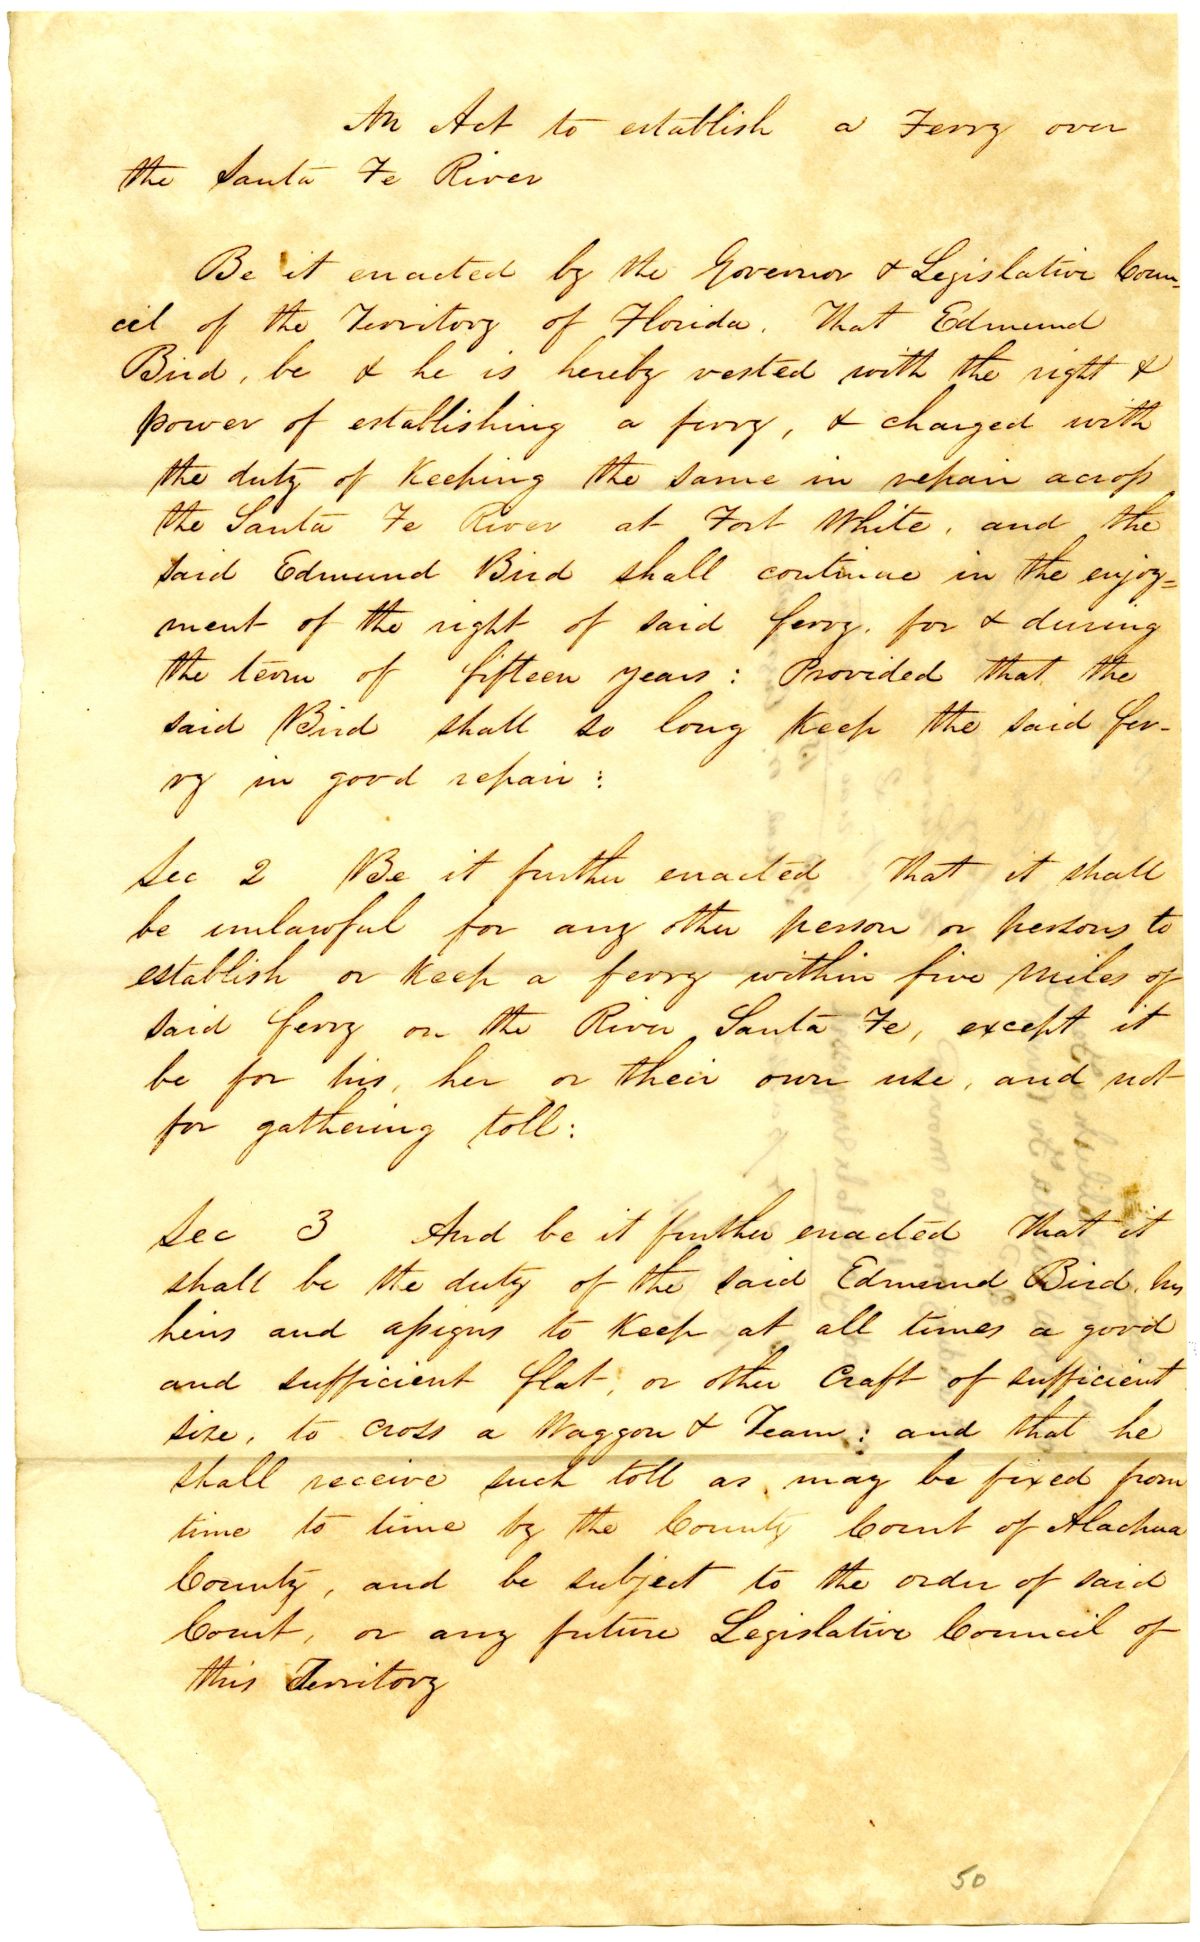 An Act to establish a Ferry over
the Santa Fe River
Be it enacted by the Governor & Legislative Coun-
cil of the Territory of Florida. That Edmund
Bird, be & he is hereby vested with the right &
power of establishing a ferry, & charged with
the duty of Keeping the same in repair across
the Santa Fe River at Fort White, and the
said Edmund Bird shall continue in the enjoy=
ment of the right of said ferry. for & during
the term of fifteen years: Provided that the
said Bird shall so long Keep the said fer-
ry in good repair:
Sec 2 Be it further enacted That it shall
be unlawful for any other person or persons to
establish or Keep a ferry within five miles of
said ferry on the River Santa Fe, except it
be for his, her or their own use, and not
for gathering toll:
Sec 3 And be it further enacted That it
shall be the duty of the said Edmund Bird, his
heirs and assigns to Keep at all times a good
and sufficient flat, or other Craft of sufficient
size, to cross a Waggon & Team: and that he
shall receive such toll as may be fixed from
time to time by the County Court of Alachua
County, and be subject to the order of said
Court, or any future Legislative Council of
this Territory
50